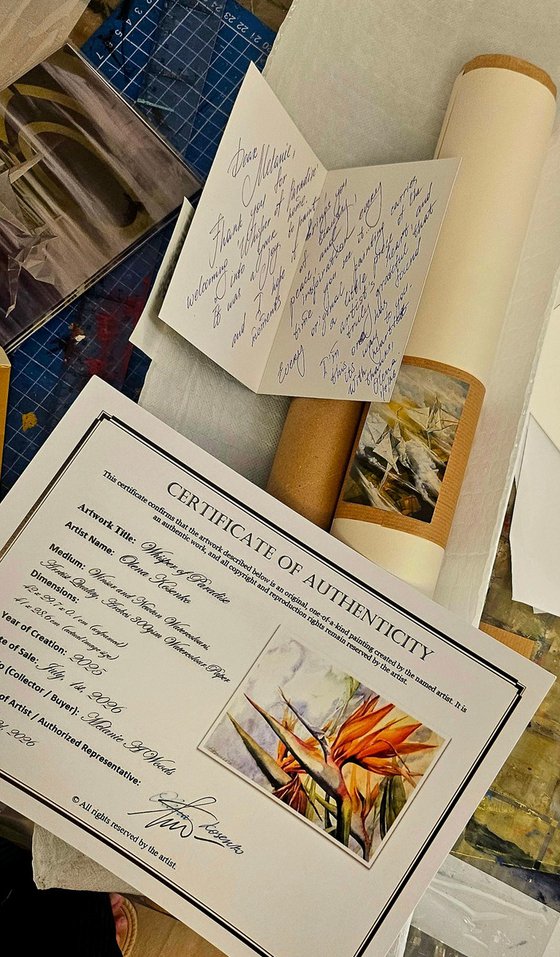 Dear
Melanie,
Thank you for
welcoming Whisper of Paradise
into your home.
It was a joy to paint
and I hope it brings you
peace, beauty,
inspiration every
some
original painting carries
a little part of the
artist's heart and
I'm truly grateful that
this one has found
to you.
With
Olena
CERTIFICATE OF AUTHENTICITY
This certificate confirms that the artwork described below is an original, one-of-a-kind painting created by the named artist. It is
an authentic work, and all copyright and reproduction rights remain reserved by the artist.
Artwork Title: Whisper of Paradise
Artist Name: Olena Kosenko
Medium: Winsor and Newton Watercolours,
Artist Quality, 300gsm Watercolour Paper
Dimensions:
42 × 29.7 × 0.1 cm (unframed)
Year of Creation: 2025
te of Sale: July 1st, 2026
(Collector / Buyer): Melanie A Woods
of Artist / Authorized Representative:
2026
© All rights reserved by the artist.